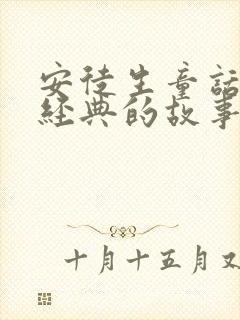 安徒生童話
經典的故事
十月十五月又